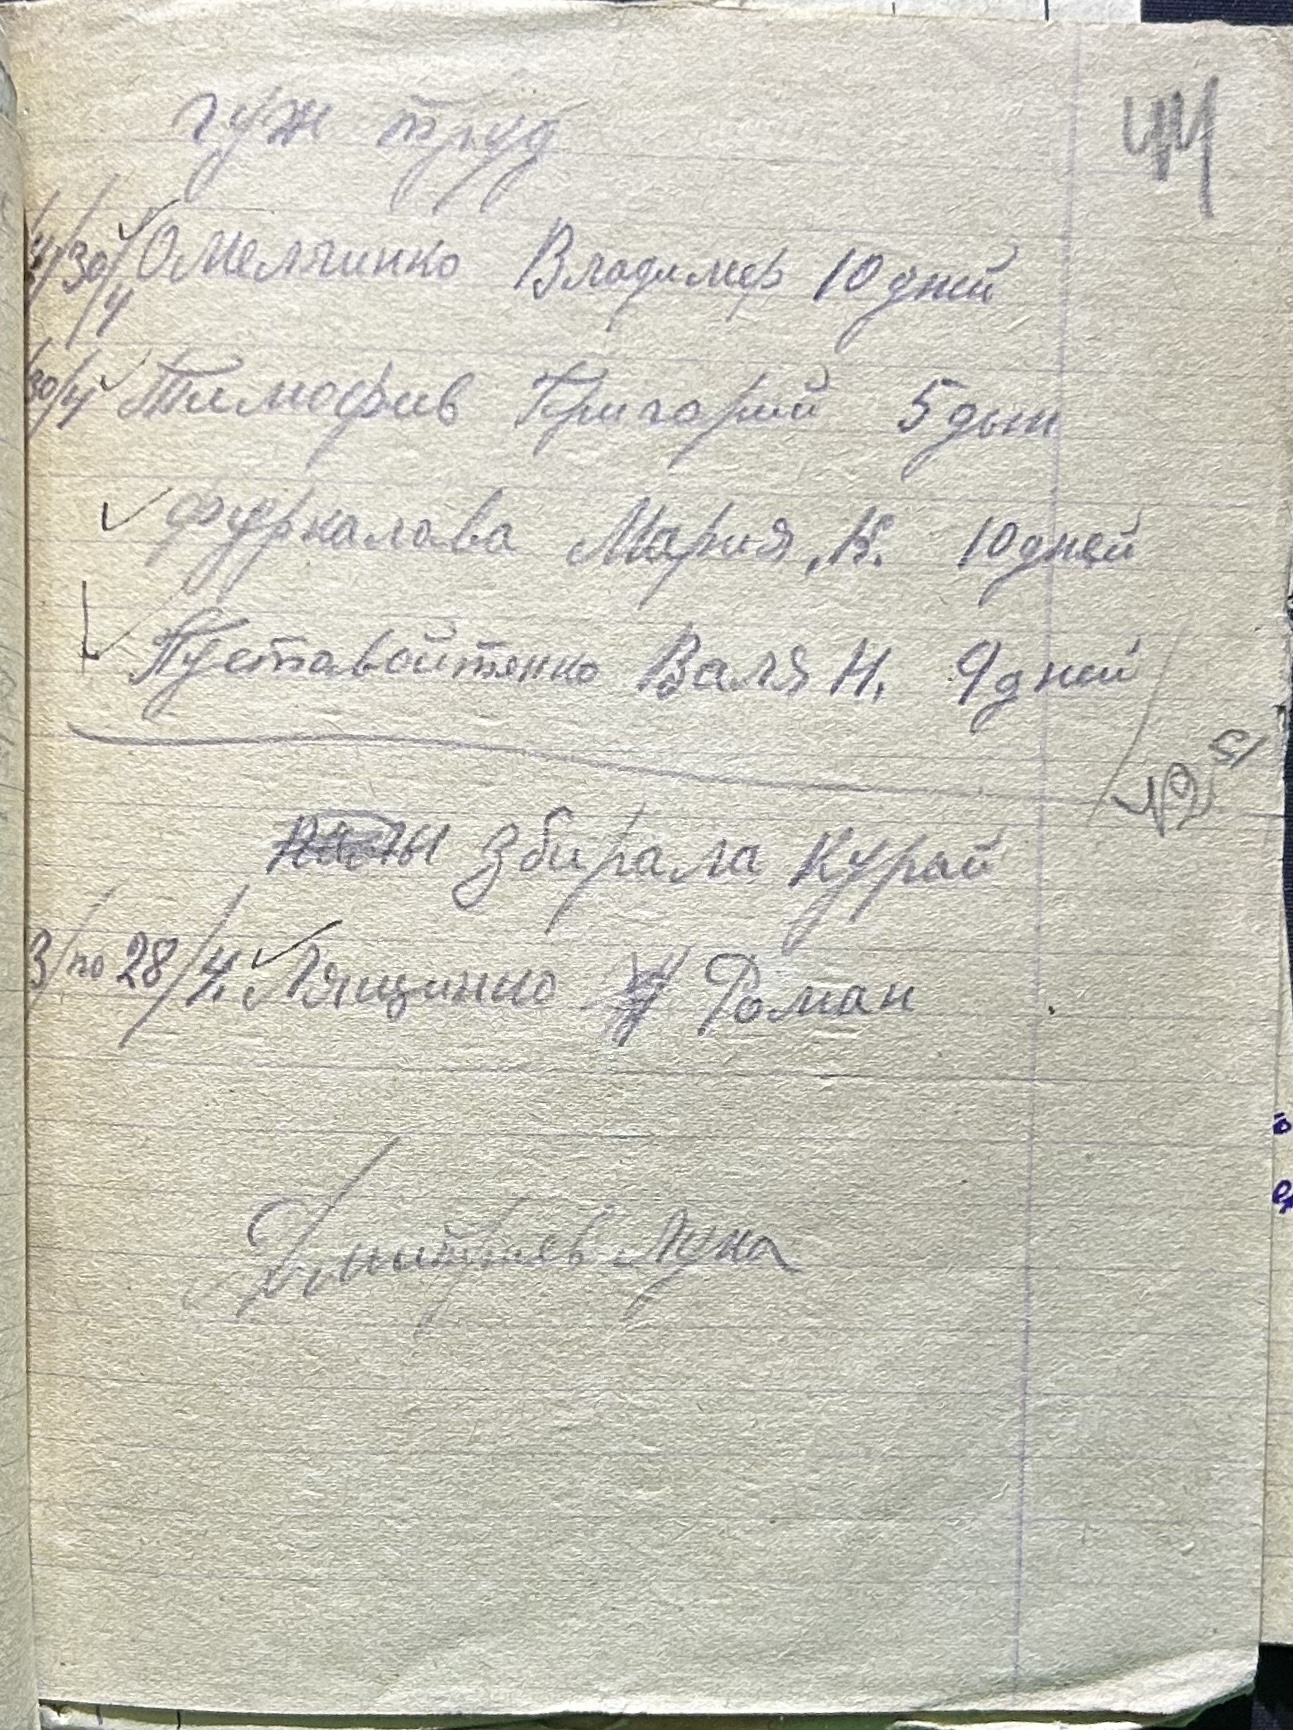 гуж труд
44
4/30/4 Омельчинко Владимер 10 дней
30/4 Тимофив Григорий 5 дьн
Фурналава Мария К. 10 дней
Пуставойтенко Валя Н. 9 дней
збирала Курай
3/по 28/4. Лящинко Роман
Дмитриев Лука